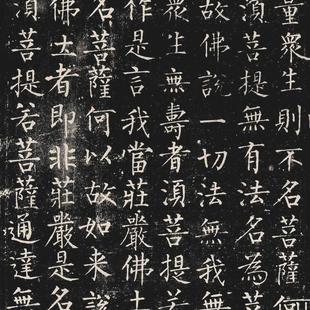 量衆生則不名菩薩何
湏菩提無有法名為菩
故佛說一切法無我無
衆生無壽者湏菩提若
作是言我當莊嚴佛土
名菩薩何以故如来說
佛土者即非莊嚴是名
湏菩提若菩薩通達無